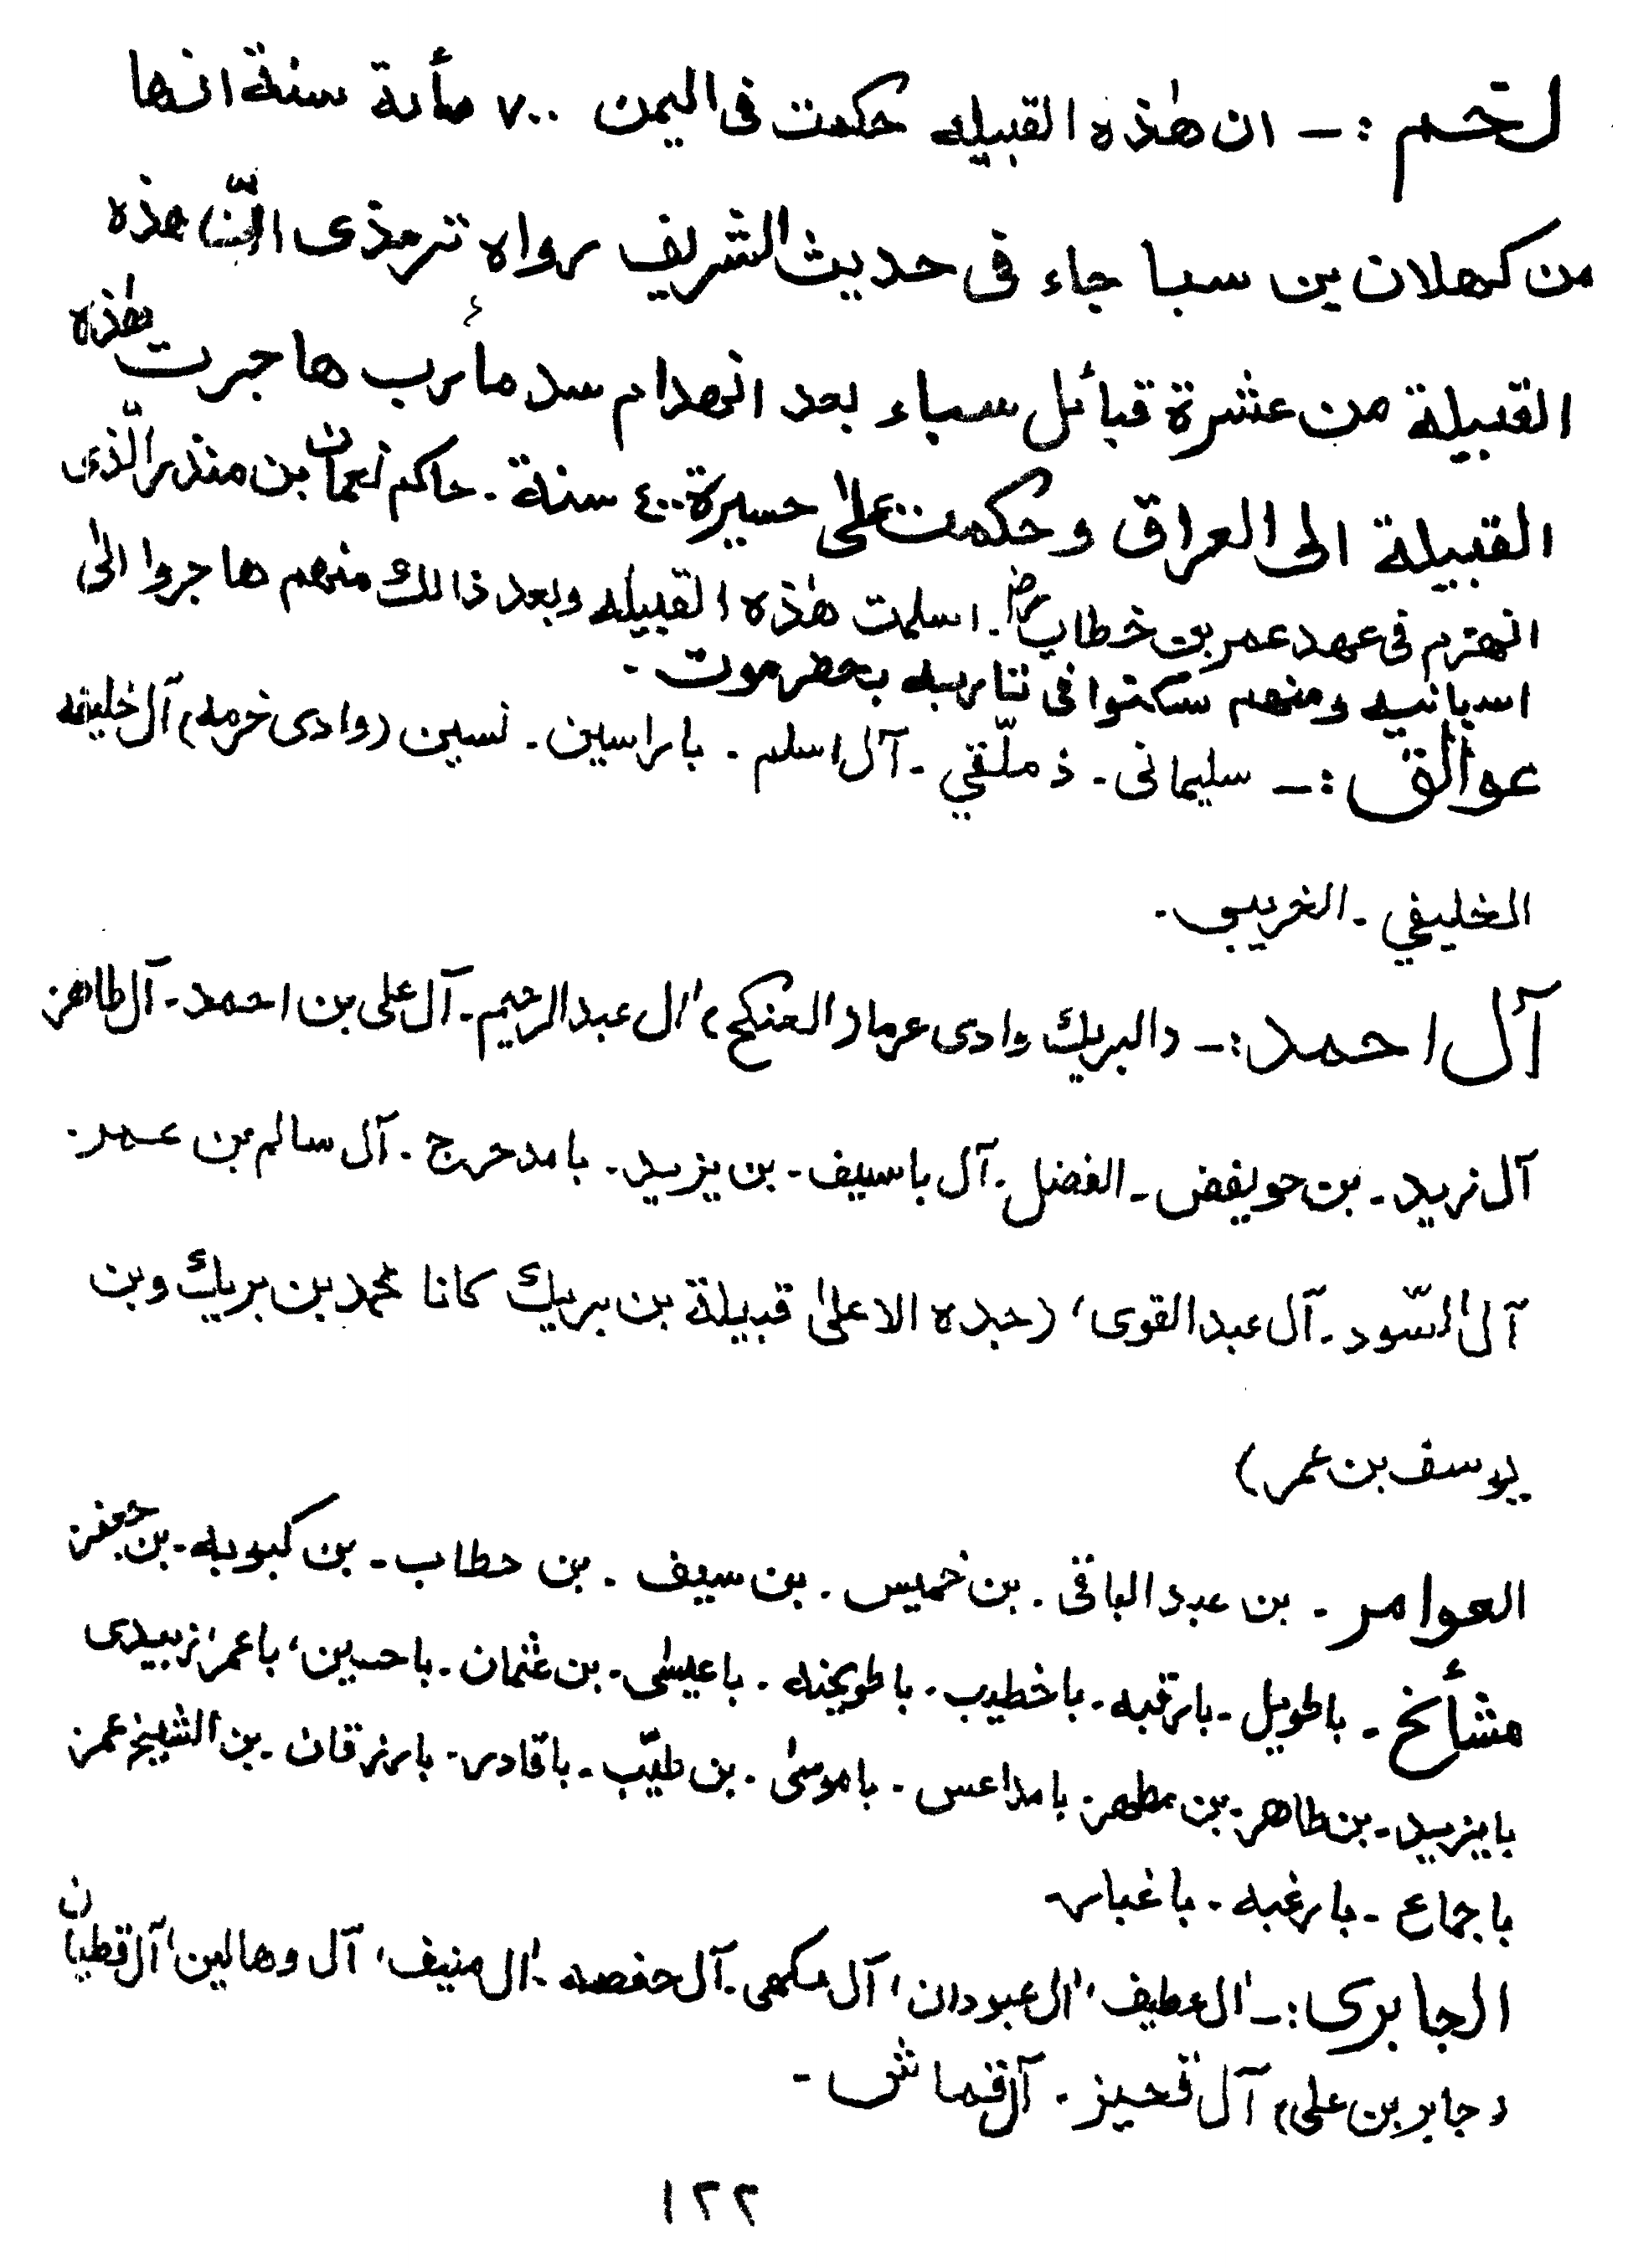 لخم :ـ ان هٰذه القبيله حكمت فى اليمن ٧٠٠ مأية سنة انها
من كهلان بن سبا جاء فى حديث الشريف رواه ترمذى انّ هذه
القبيلة من عشرة قبائل سباء بعد انهدام سد مأرب هاجرت هٰذه
القبيلة الى العراق و حكمت على حسيرة ٤٠٠ سنة - حاكم نعمان بن منذر الّذى
انهزم فى عهد عمر بن خطابؓ - اسلمت هٰذه القبيله و بعد ذالك منهم هاجروا الىٰ
اسبانيه و منهم سكنوا فى تاربه بحضرموت -
عوالق :ـ سليمانى - ذملّقي - آل اسلم - باراسين - نسين (وادى خرمه) آل خليفه
الخليفي - الغريبى -
آل احمد :ـ دالبريك وادى عرما (العنكح) ال عبد الرحيم - آل على بن احمد - آل طاهر
آل زيد - بن حويفض - الفضل - آل باسيف - بن يزيد - بامدحرج - آل سالم بن عمر -
آل السّود - آل عبد القوى، (جده الاعلىٰ قبيلة بن بريك كانا محمد بن بريك و بن
يوسف بن عمر)
العوامر - بن عبد الباقى - بن خميس - بن سيف - بن حطاب - بن كبوبه - بن جعفر
مشأئخ - باطويل - بارقبه - باخطيب - باطويحنه - باعيسٰى - بن عثمان - باحسين، باعمر زبيدى
بايزيد - بن طاهر - بن مطهر - بامداعس - باموسىٰ - بن طيّب - باقادر - بارزقان - بن الشيخ عمر
باجماع - بارغبه - باغبار -
الجابرى :ـ ال عطيف، ال عبودان، آل مكهى - آل حفصه - ال منيف، آل وهالين، آل قطيان
(جابر بن على) آل قحيز - آل قماش -
١٢٢